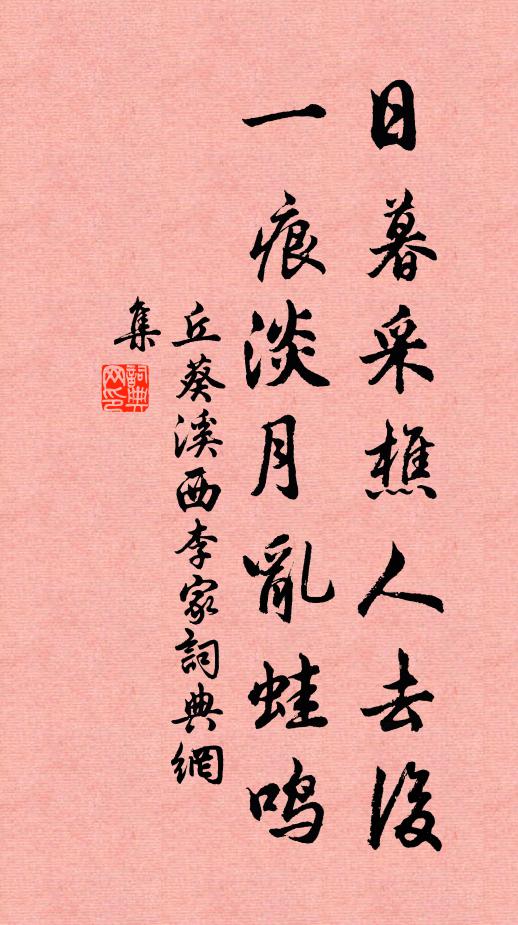 日暮采樵人去後
一痕淡月亂蛙鳴
丘葵溪西李家詞典網
集
詞典網印